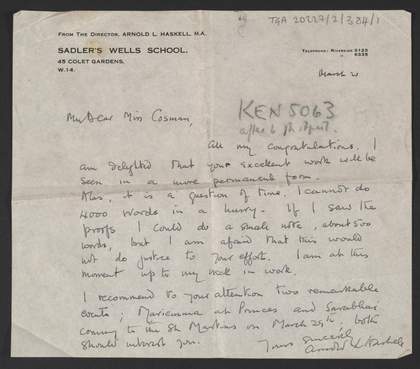 TGA 20227/2/3
FROM THE DIRECTOR, ARNOLD L. HASKELL, M.A.
SADLER'S WELLS SCHOOL.
45 COLET GARDENS,
W.14.
TELEPHONE: RIVERSIDE
March 21
KEN 5063
My Dear Miss Cosman,
All my congratulations. I
am delighted that your excellent work will be
seen in a more permanent form.
Alas, it is a question of time. I cannot do
4000 words in a hurry. If I saw the
proofs I could do a small note, about 500
words, but I am afraid that this would
not do justice to your effort. I am at this
moment up to my neck in work.
I recommend to your attention two remarkable
events; Mariemma at Princes and Sarabhai
coming to the St Martins on March 29th, both
should interest you.
Yours sincerely
Arnold L Haskell